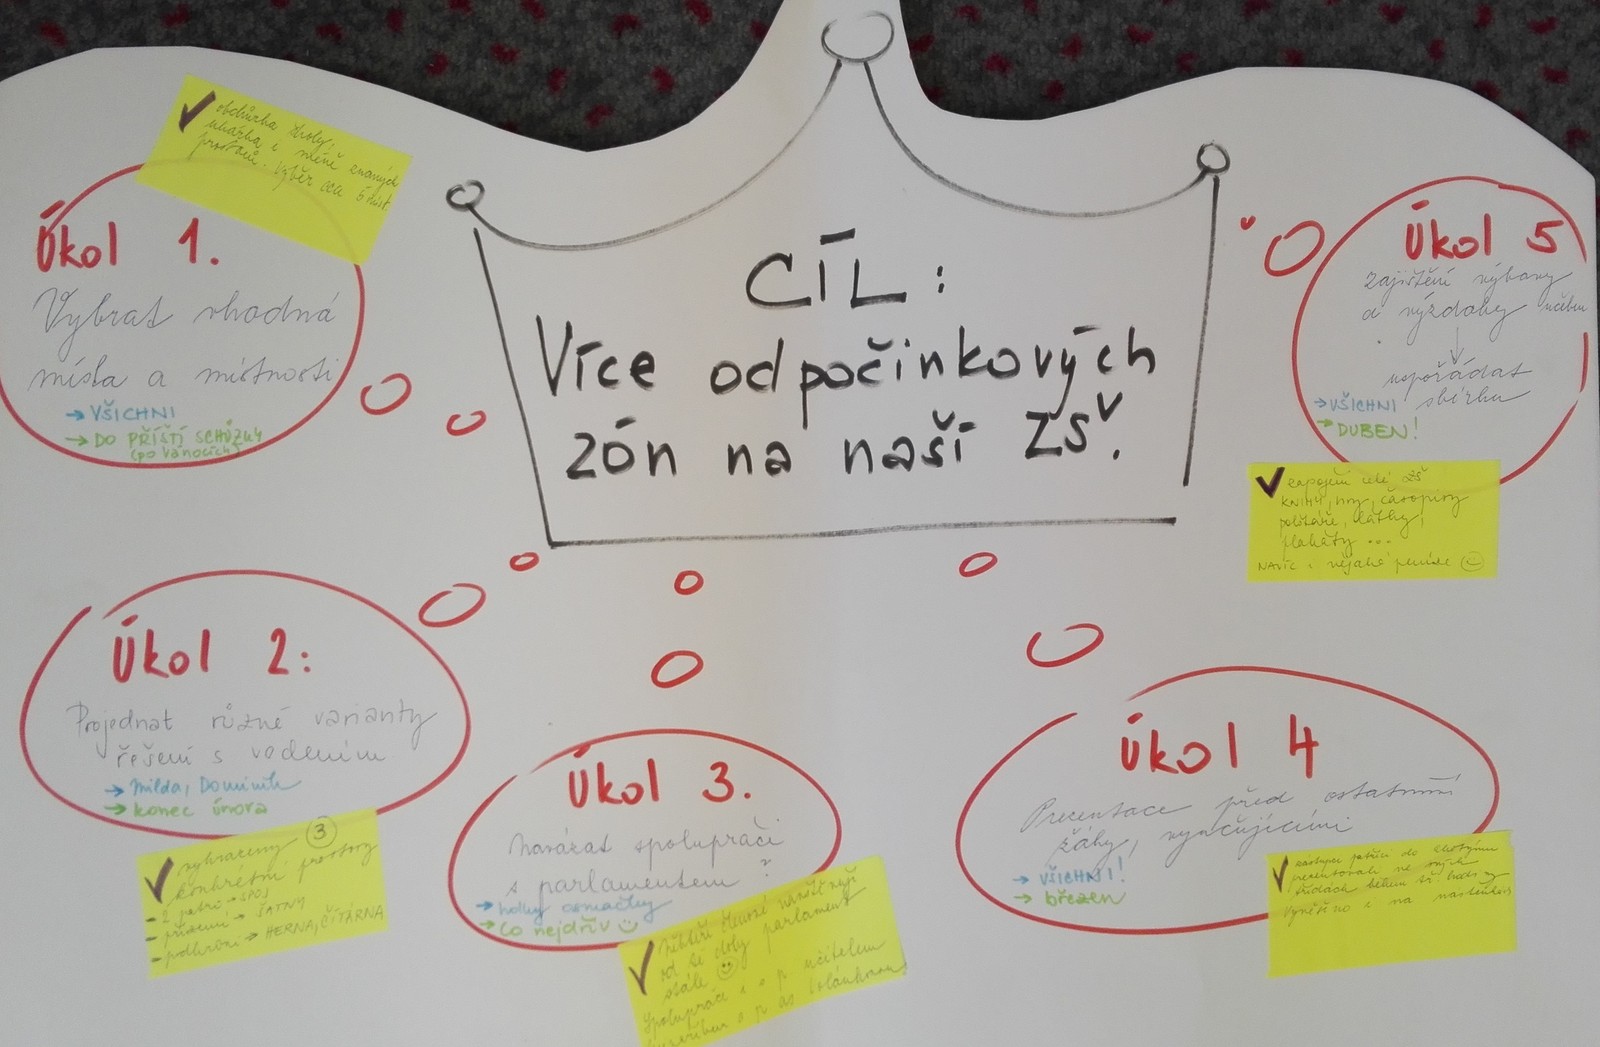 CÍL:
Více odpočinkových
zón na naší ZŠ.
Úkol 1.
Vybrat vhodná
místa a místnosti
→ VŠICHNI
→ DO PŘÍŠTÍ SCHŮZKY
(po Vánocích)
✓ obchůzka školy,
ukázka i méně známých
prostorů. Výběr cca 5 míst.
Úkol 2:
Projednat různé varianty
řešení s vedením
→ Milda, Dominik
→ konec února
✓ vyhrazeny 3
konkrétní prostory
- 2. patro →
- přízemí → ŠATNY
- podkroví → HERNA, ČÍTÁRNA
Úkol 3.
Navázat spolupráci
s parlamentem ?
→ holky osmačky
→ co nejdřív
✓ Někteří členové navštěvují
od té doby parlament
stále
Spolupráce i s p. učitelem
Úkol 4
Prezentace před ostatními
žáky, vyučujícími
→ VŠICHNI!
→ březen
✓ zástupci patřící do
prezentovali ve svých
třídách během tř. hodiny
Vyvěšeno i na nástěnkách
Úkol 5
Zajištění výbavy
a výzdoby učeben
↓
uspořádat
sbírku
→ VŠICHNI
→ DUBEN!
✓ zapojení celé ZŠ
KNIHY, hry, časopisy
polštáře, látky,
plakáty ...
NAVÍC i nějaké peníze